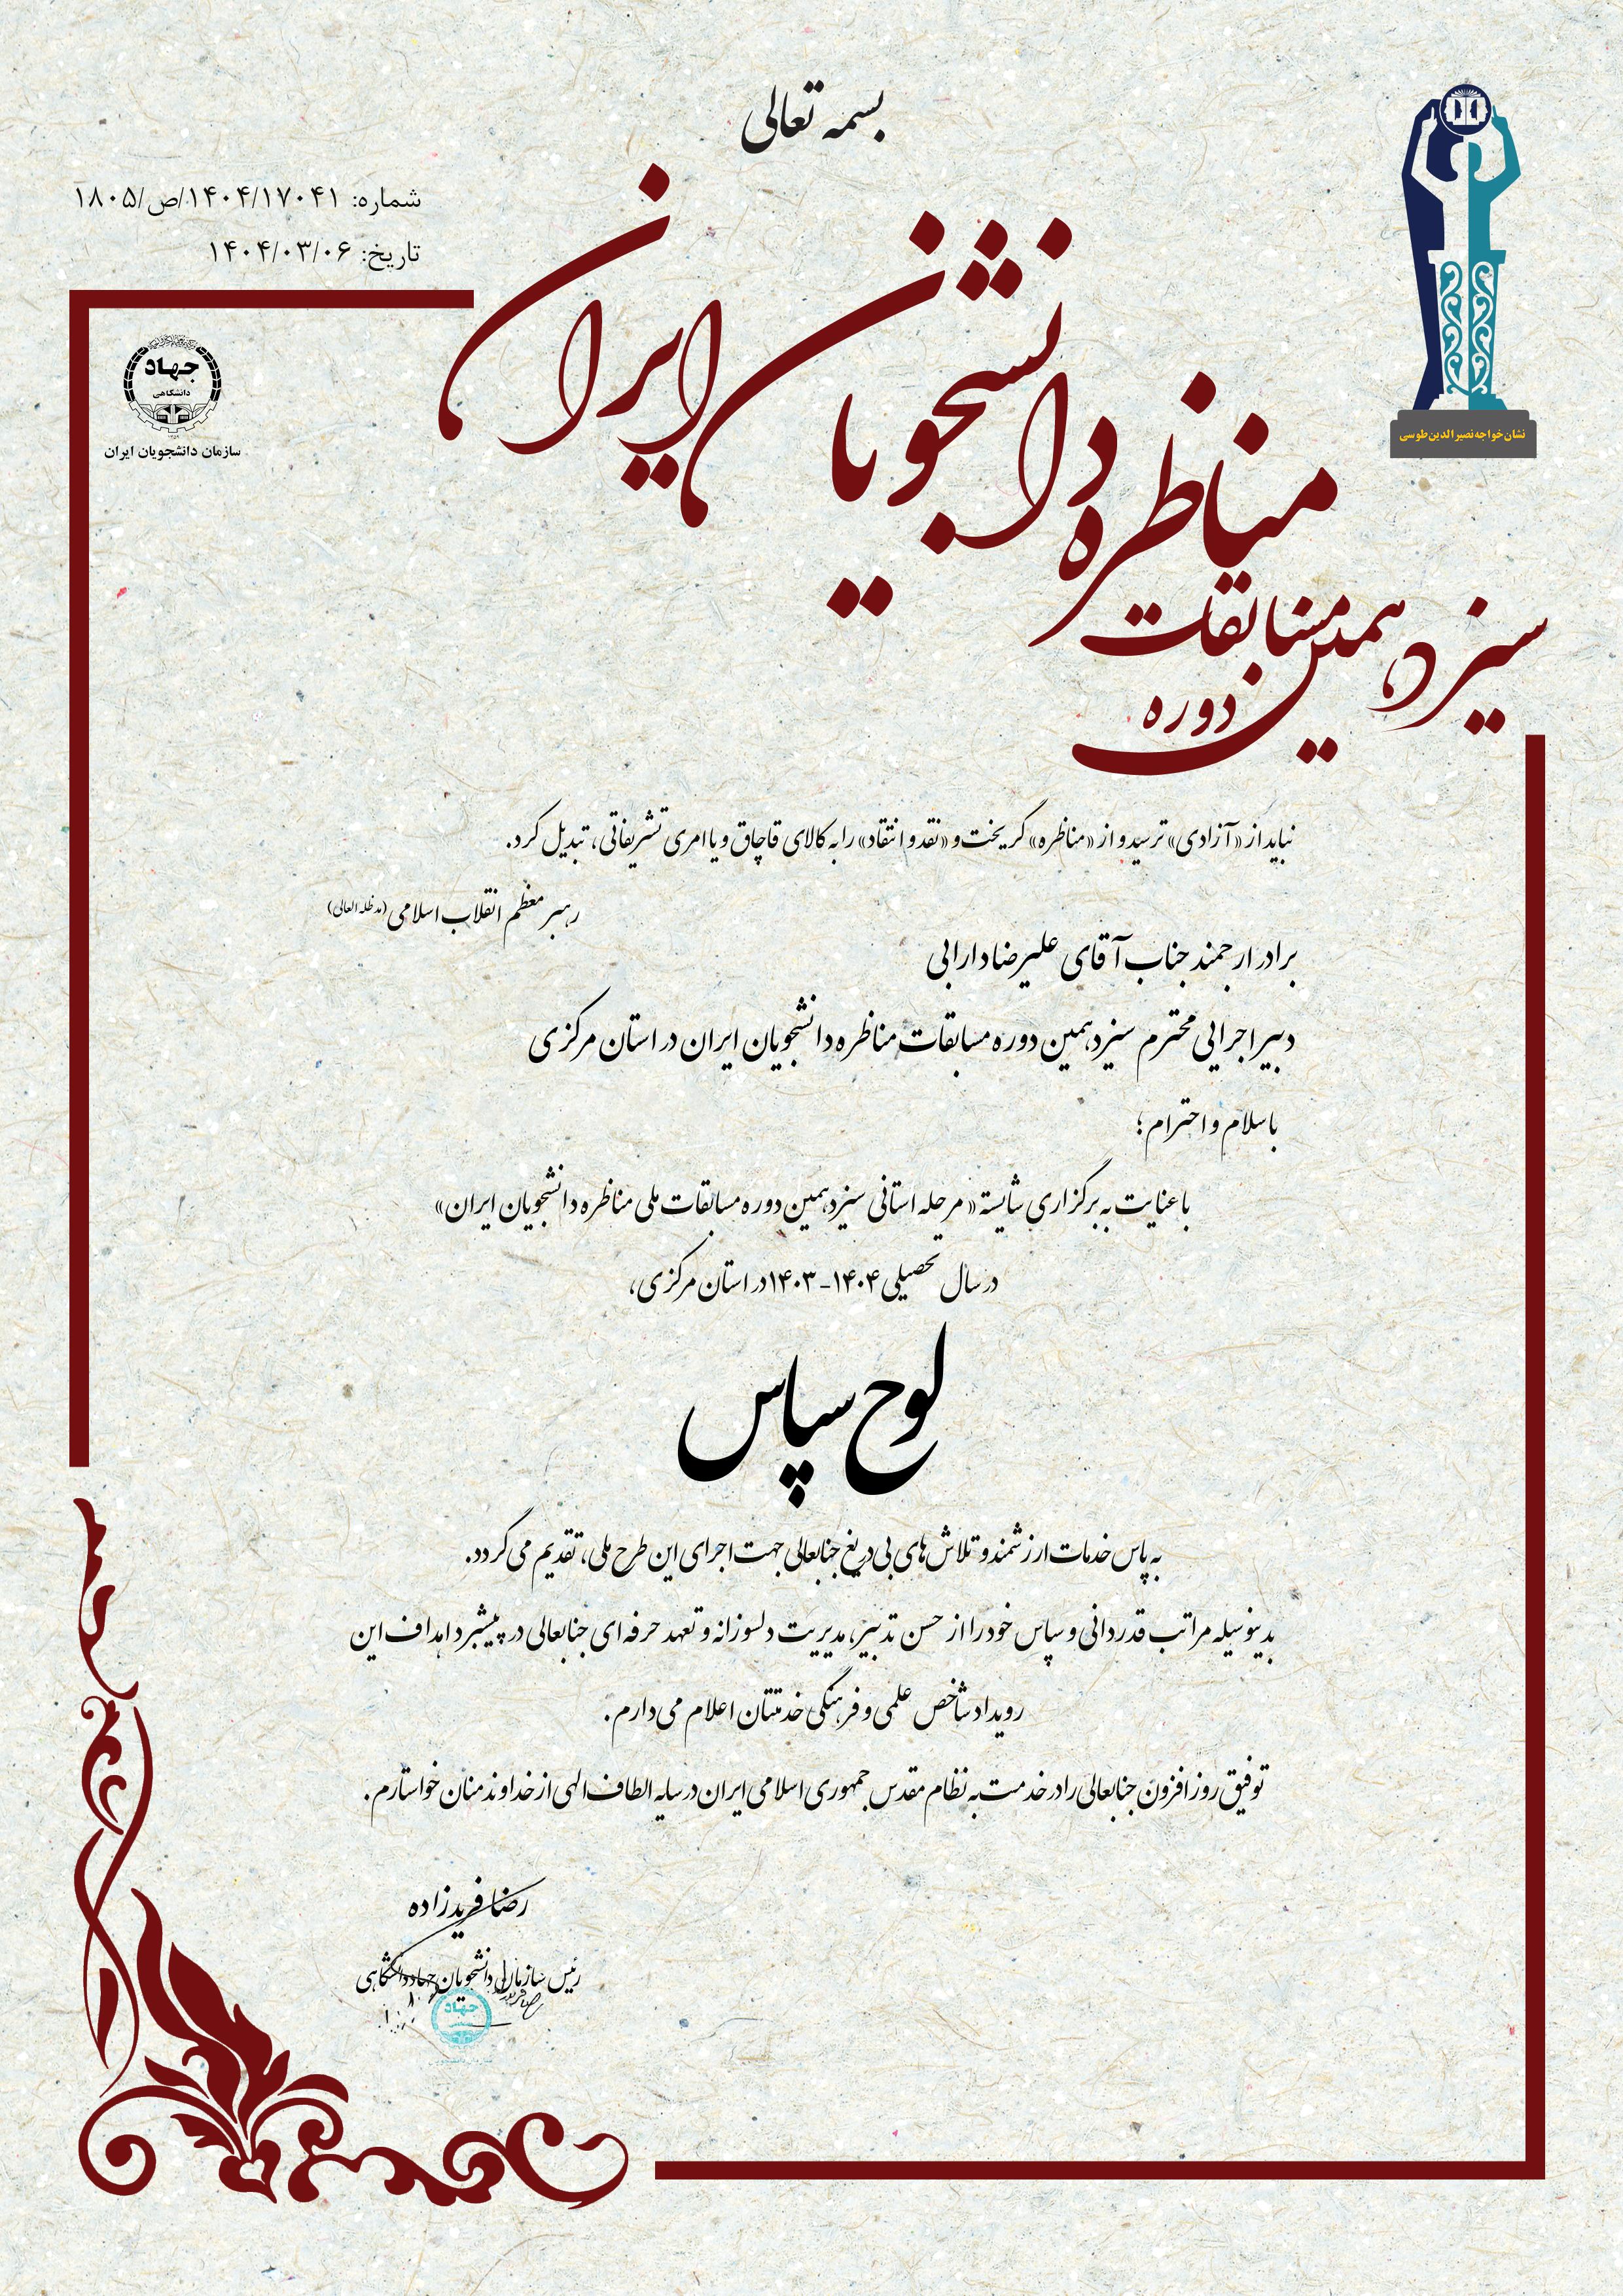 بسمه تعالی
شماره: ۱۴۰۴/۱۷۰۴۱/ص/۱۸۰۵
تاریخ: ۱۴۰۴/۰۳/۰۶
جهاد
دانشگاهی
۱۳۵۹
سازمان دانشجویان ایران
نشان خواجه نصیرالدین طوسی
سیزدهمین دوره
مسابقات
مناظره دانشجویان ایران
نباید از «آزادی» ترسید و از «مناظره» گریخت و «نقد و انتقاد» را به کالای قاچاق و یا امری تشریفاتی، تبدیل کرد.
رهبر معظم انقلاب اسلامی (مدظله العالی)
برادر ارجمند جناب آقای علیرضا دارابی
دبیر اجرایی محترم سیزدهمین دوره مسابقات مناظره دانشجویان ایران در استان مرکزی
با سلام و احترام؛
با عنایت به برگزاری شایسته «مرحله استانی سیزدهمین دوره مسابقات ملی مناظره دانشجویان ایران»
در سال تحصیلی ۱۴۰۴-۱۴۰۳ در استان مرکزی،
لوح سپاس
به پاس خدمات ارزشمند و تلاش‌های بی‌دریغ جنابعالی جهت اجرای این طرح ملی، تقدیم می‌گردد.
بدینوسیله مراتب قدردانی و سپاس خود را از حسن تدبیر، مدیریت دلسوزانه و تعهد حرفه‌ای جنابعالی در پیشبرد اهداف این
رویداد شاخص علمی و فرهنگی خدمتتان اعلام می‌دارم.
توفیق روزافزون جنابعالی را در خدمت به نظام مقدس جمهوری اسلامی ایران در سایه الطاف الهی از خداوند منان خواستارم.
رضا فریدزاده
رئیس سازمان دانشجویان جهاددانشگاهی
جهاد